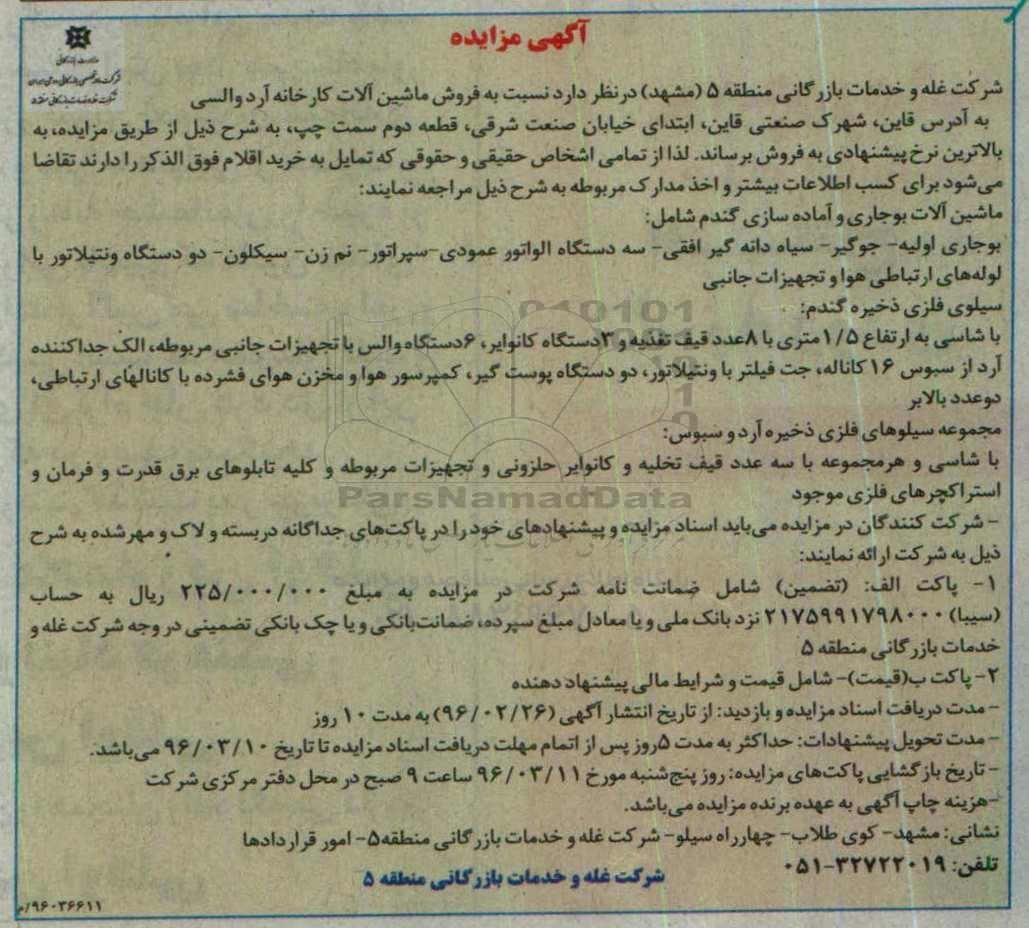 آگهی مزایده
وزارت بازرگانی
شرکت غله و خدمات بازرگانی منطقه ۵ (مشهد) درنظر دارد نسبت به فروش ماشین آلات کارخانه آرد والسی
به آدرس قاین، شهرک صنعتی قاین، ابتدای خیابان صنعت شرقی، قطعه دوم سمت چپ، به شرح ذیل از طریق مزایده، به
بالاترین نرخ پیشنهادی به فروش برساند. لذا از تمامی اشخاص حقیقی و حقوقی که تمایل به خرید اقلام فوق الذکر را دارند تقاضا
می‌شود برای کسب اطلاعات بیشتر و اخذ مدارک مربوطه به شرح ذیل مراجعه نمایند:
ماشین آلات بوجاری و آماده سازی گندم شامل:
بوجاری اولیه- جوگیر- سیاه دانه گیر افقی- سه دستگاه الواتور عمودی-سپراتور- نم زن- سیکلون- دو دستگاه ونتیلاتور با
لوله‌های ارتباطی هوا و تجهیزات جانبی
سیلوی فلزی ذخیره گندم:
با شاسی به ارتفاع ۱/۵ متری با ۸عدد قیف تغذیه و ۳دستگاه کانوایر، ۶دستگاه والس با تجهیزات جانبی مربوطه، الک جداکننده
آرد از سبوس ۱۶ کاناله، جت فیلتر با ونتیلاتور، دو دستگاه پوست گیر، کمپرسور هوا و مخزن هوای فشرده با کانالهای ارتباطی،
دوعدد بالابر
مجموعه سیلوهای فلزی ذخیره آرد و سبوس:
با شاسی و هرمجموعه با سه عدد قیف تخلیه و کانوایر حلزونی و تجهیزات مربوطه و کلیه تابلوهای برق قدرت و فرمان و
استراکچرهای فلزی موجود
ParsNamadData
- شرکت کنندگان در مزایده می‌باید اسناد مزایده و پیشنهادهای خود را در پاکت‌های جداگانه دربسته و لاک و مهرشده به شرح
ذیل به شرکت ارائه نمایند:
۱- پاکت الف: (تضمین) شامل ضمانت نامه شرکت در مزایده به مبلغ ۲۲۵/۰۰۰/۰۰۰ ریال به حساب
(سیبا) ۲۱۷۵۹۹۱۷۹۸۰۰۰ نزد بانک ملی و یا معادل مبلغ سپرده، ضمانت‌بانکی و یا چک بانکی تضمینی در وجه شرکت غله و
خدمات بازرگانی منطقه ۵
۲- پاکت ب(قیمت)- شامل قیمت و شرایط مالی پیشنهاد دهنده
- مدت دریافت اسناد مزایده و بازدید: از تاریخ انتشار آگهی (۹۶/۰۲/۲۶) به مدت ۱۰ روز
- مدت تحویل پیشنهادات: حداکثر به مدت ۵روز پس از اتمام مهلت دریافت اسناد مزایده تا تاریخ ۹۶/۰۳/۱۰ می‌باشد.
- تاریخ بازگشایی پاکت‌های مزایده: روز پنج‌شنبه مورخ ۹۶/۰۳/۱۱ ساعت ۹ صبح در محل دفتر مرکزی شرکت
-هزینه چاپ آگهی به عهده برنده مزایده می‌باشد.
نشانی: مشهد- کوی طلاب- چهارراه سیلو- شرکت غله و خدمات بازرگانی منطقه۵- امور قراردادها
تلفن: ۳۲۷۲۲۰۱۹-۰۵۱
شرکت غله و خدمات بازرگانی منطقه ۵
۹۶۰۳۶۶۱۱/م